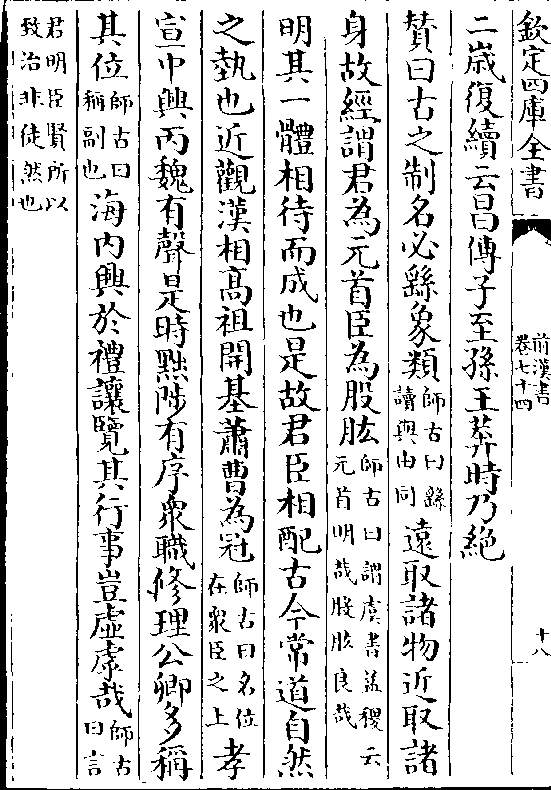 欽定四庫全書
前漢書
卷七十四
十八
二嵗復續云昌傳子至孫王莽時乃絶
賛曰古之制名必繇象類師古曰繇讀與由同遠取諸物近取諸
身故經謂君為元首臣為股肱師古曰謂虞書益稷云元首明哉股肱良哉
明其一體相待而成也是故君臣相配古今常道自然
之埶也近觀漢相髙祖開基蕭曹為冠師古曰名位在衆臣之上孝
宣中興丙魏有聲是時黜陟有序衆職修理公卿多稱
其位師古曰稱副也海内興於禮讓覽其行事豈虚虖哉師古曰言
君明臣賢所以致治非徒然也